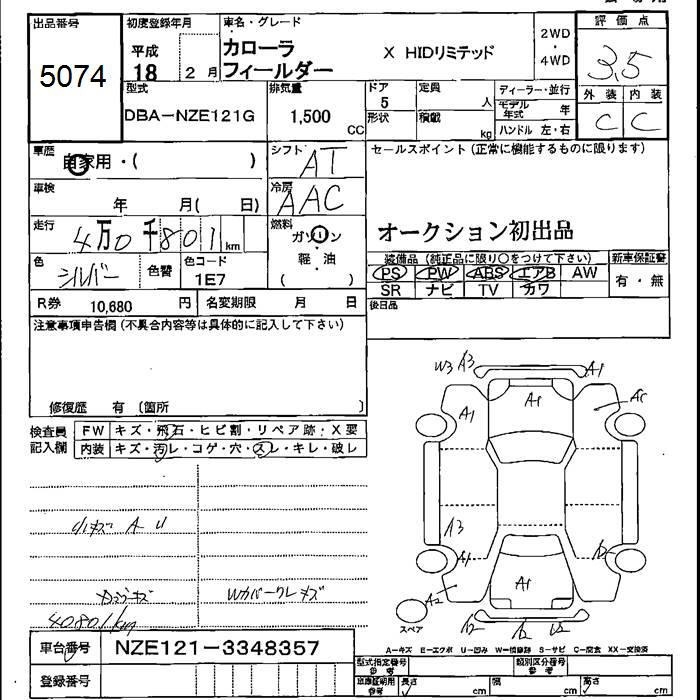 出品番号
5074
初度登録年月
平成
18 2月
車名・グレード
カローラ
フィールダー
X HIDリミテッド
2WD
・
4WD
評価点
3.5
外装 内装
C C
型式
DBA-NZE121G
排気量
1,500
CC
ドア
5
形状
定員
人
積載
kg
ディーラー・並行
モデル年式 年
ハンドル 左・右
車歴
自家用・( )
シフト
AT
車検
年 月( 日)
冷房
AAC
走行
4万0千801km
燃料
ガソリン
・
軽・油
( )
色
シルバー
色替
色コード
1E7
R券 10,680 円
名変期限 月 日
セールスポイント(正常に機能するものに限ります)
オークション初出品
装備品(純正品に限り○をつけて下さい)
PS PW ABS エアB AW
SR ナビ TV カワ
新車保証書
有・無
後日品
注意事項申告欄(不具合内容等は具体的に記入して下さい)
修復歴 有〔箇所 〕
検査員
記入欄
FW キズ・飛石・ヒビ割・リペア跡・X要
内装 キズ・汚レ・コゲ・穴・スレ・キレ・破レ
小キズ A U
Wカバークレキズ
40801km
W3 A3
A1
A1
A1
A3
A1
A1
A2
A2
スペア
A-キズ E-エクボ U-凹み W-補修跡 S-サビ C-腐食 XX-交換済
車台番号 NZE121-3348357
登録番号
型式指定番号
参考
類別区分番号
参考
車庫証明用
参考
長さ cm
幅 cm
高さ cm